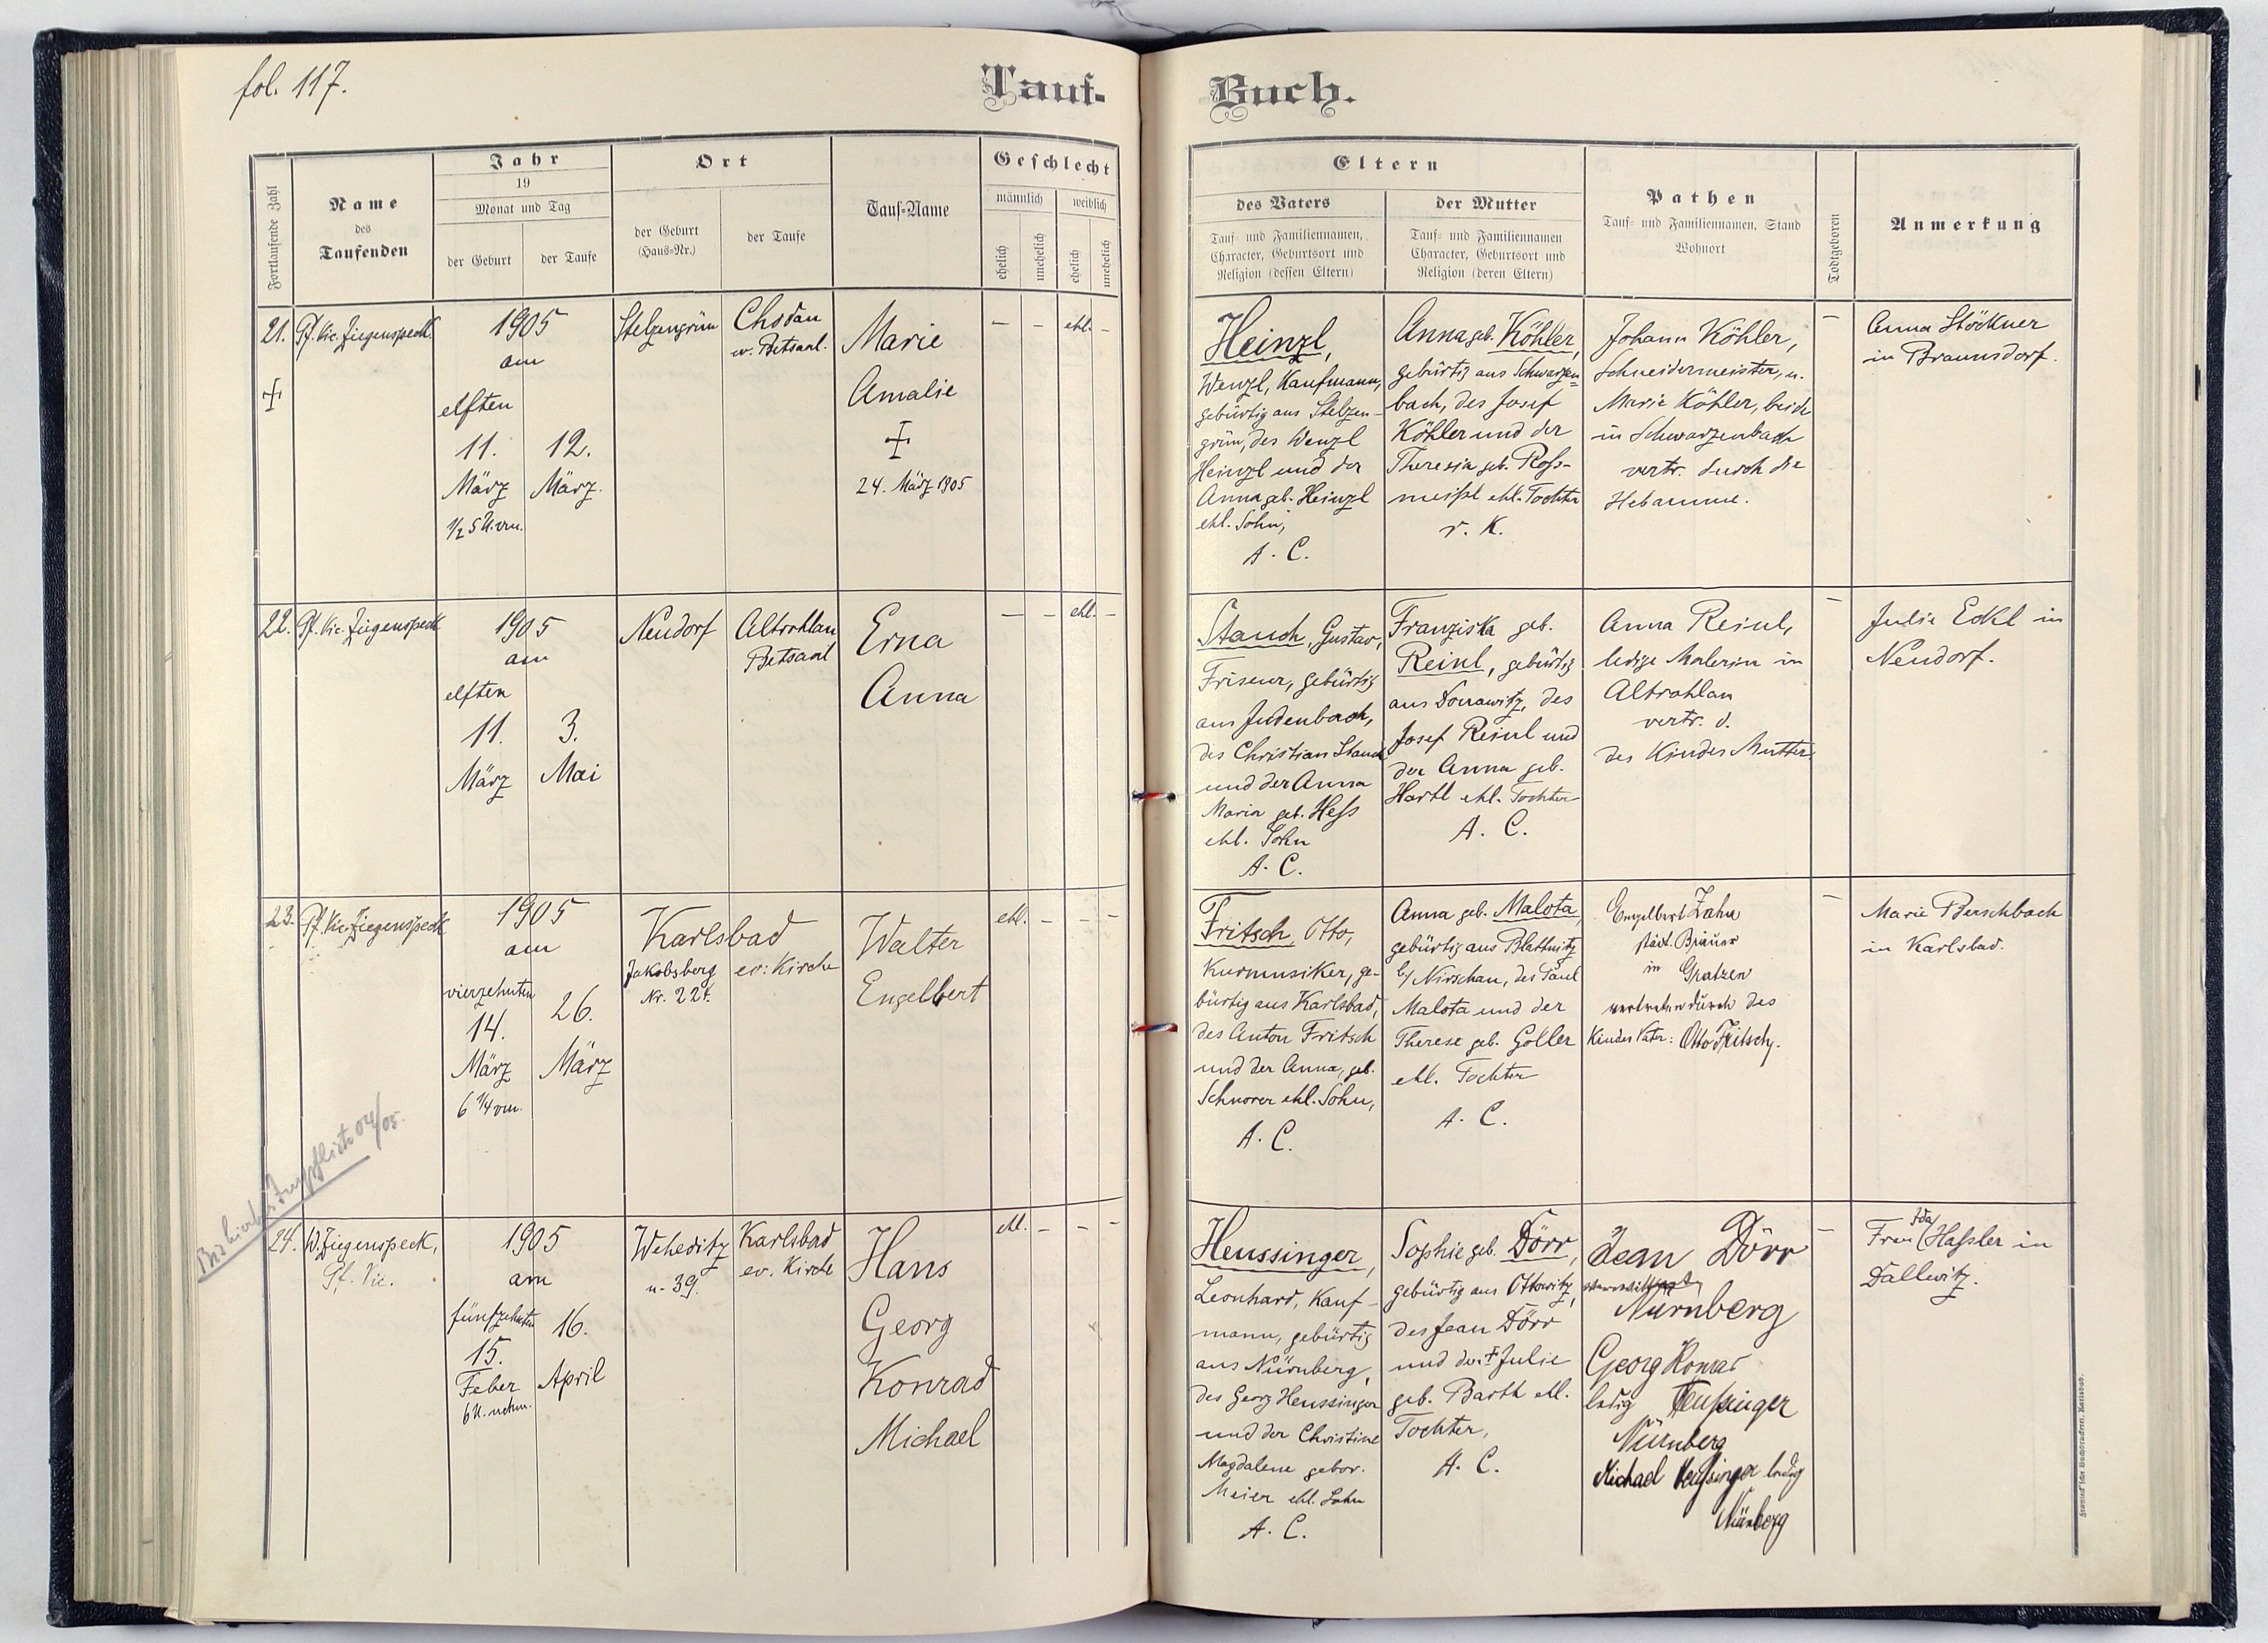 fol. 117.
Tauf-
Buch.
Fortlaufende Zahl
Name
des
Taufenden
Jahr
19
Monat und Tag
der Geburt
der Taufe
Ort
der Geburt
(Haus-Nr.)
der Taufe
Tauf-Name
Geschlecht
männlich
weiblich
ehelich
unehelich
ehelich
unehelich
Eltern
des Vaters
Tauf- und Familiennamen,
Character, Geburtsort und
Religion (dessen Eltern)
der Mutter
Tauf- und Familiennamen
Character, Geburtsort und
Religion (deren Eltern)
Pathen
Tauf- und Familiennamen, Stand
Wohnort
Todtgeboren
Anmerkung
21.
Pf. Vic. Ziegenspeck.
1905
am
elften
11.
März
1/2 5 U. vm.
12.
März.
Stelzengrün
Chodau
ev. Betsaal.
Marie
Amalie
24. März 1905
– – ehl. –
Heinzl,
Wenzl, Kaufmann,
gebürtig aus Stelzen-
grün, des Wenzl
Heinzl und der
Anna geb. Heinzl
ehl. Sohn,
A. C.
Anna geb. Köhler,
gebürtig aus Schwarzen=
bach, des Josef
Köhler und der
Theresia geb. Roß-
meißl ehl. Tochter
r. K.
Johann Köhler,
Schneidermeister, u.
Marie Köhler, beide
in Schwarzenbach
vertr. durch die
Hebamme.
–
Anna Stöckner
in Braunsdorf.
22.
Pf. Vic. Ziegenspeck
1905
am
elften
11.
März
3.
Mai
Neudorf
Altrohlau
Betsaal
Erna
Anna
– – ehl. –
Stauch, Gustav,
Friseur, gebürtig
aus Judenbach,
des Christian Stauch
und der Anna
Maria geb. Heß
ehl. Sohn
A. C.
Franziska geb.
Reinl, gebürtig
aus Donawitz, des
Josef Reinl und
der Anna geb.
Hartl ehl. Tochter
A. C.
Anna Reinl,
ledige Malerin in
Altrohlau
vertr. d.
des Kindes Mutter.
–
Julie Eckl in
Neudorf.
23.
Pf. Vic. Ziegenspeck
1905
am
vierzehnten
14.
März
6 1/4 vm.
26.
März
Karlsbad
Jakobsberg
Nr. 224.
ev: Kirche
Walter
Engelbert
ehl. – – –
Fritsch, Otto,
Kurmusiker, ge-
bürtig aus Karlsbad,
des Anton Fritsch
und der Anna, geb.
Schnorer ehl. Sohn,
A. C.
Anna geb. Malota,
gebürtig aus Blattnitz
b/ Nirschau, des Paul
Malota und der
Therese geb. Goller
ehl. Tochter
A. C.
Engelbert Zahn
städt. Bräuer
in Gratzen
vertreten durch des
Kindes Vater: Otto Fritsch.
–
Marie Berschbach
in Karlsbad.
Bis hierher Impfliste 04/05.
24.
W. Ziegenspeck,
Pf. Vic.
1905
am
fünfzehnten
15.
Feber
6 U. nchm.
16.
April
Weheditz
n. 39.
Karlsbad
ev. Kirche
Hans
Georg
Konrad
Michael
ehl. – – –
Heussinger,
Leonhard, Kauf-
mann, gebürtig
aus Nürnberg,
des Georg Heussinger
und der Christine
Magdalene gebor.
Meier ehl. Sohn
A. C.
Sophie geb. Dörr,
gebürtig aus Ottowitz,
des Jean Dörr
und der † Julie
geb. Barth ehl.
Tochter,
A. C.
Jean Dörr
Nürnberg
Georg Konrad
ledig Heußinger
Nürnberg
Michael Heußinger ledig
Nürnberg
–
Frau Ida Haßler in
Dallwitz.